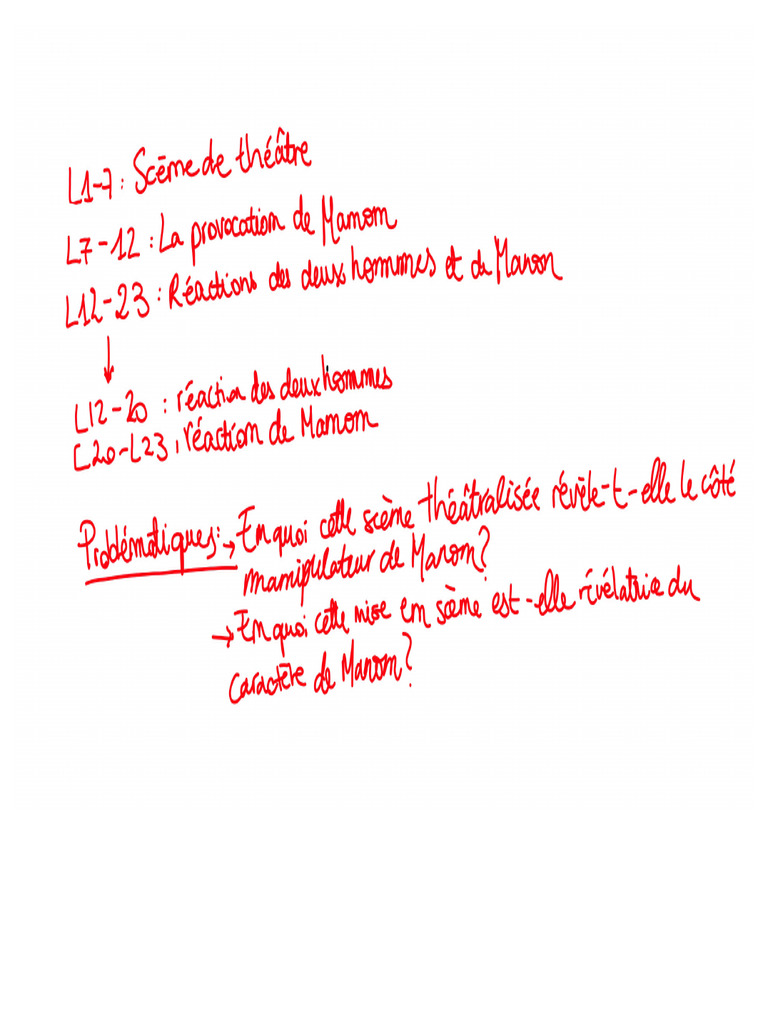 L1-7: Scène de théâtre
L7-12: La provocation de Manon
L12-23: Réactions des deux hommes et de Manon
↓
L12-20: réaction des deux hommes
L20-L23, réaction de Manon
Problématiques: → En quoi cette scène théâtralisée révèle-t-elle le côté
manipulateur de Manon?
→ En quoi cette mise en scène est-elle révélatrice du
caractère de Manon?